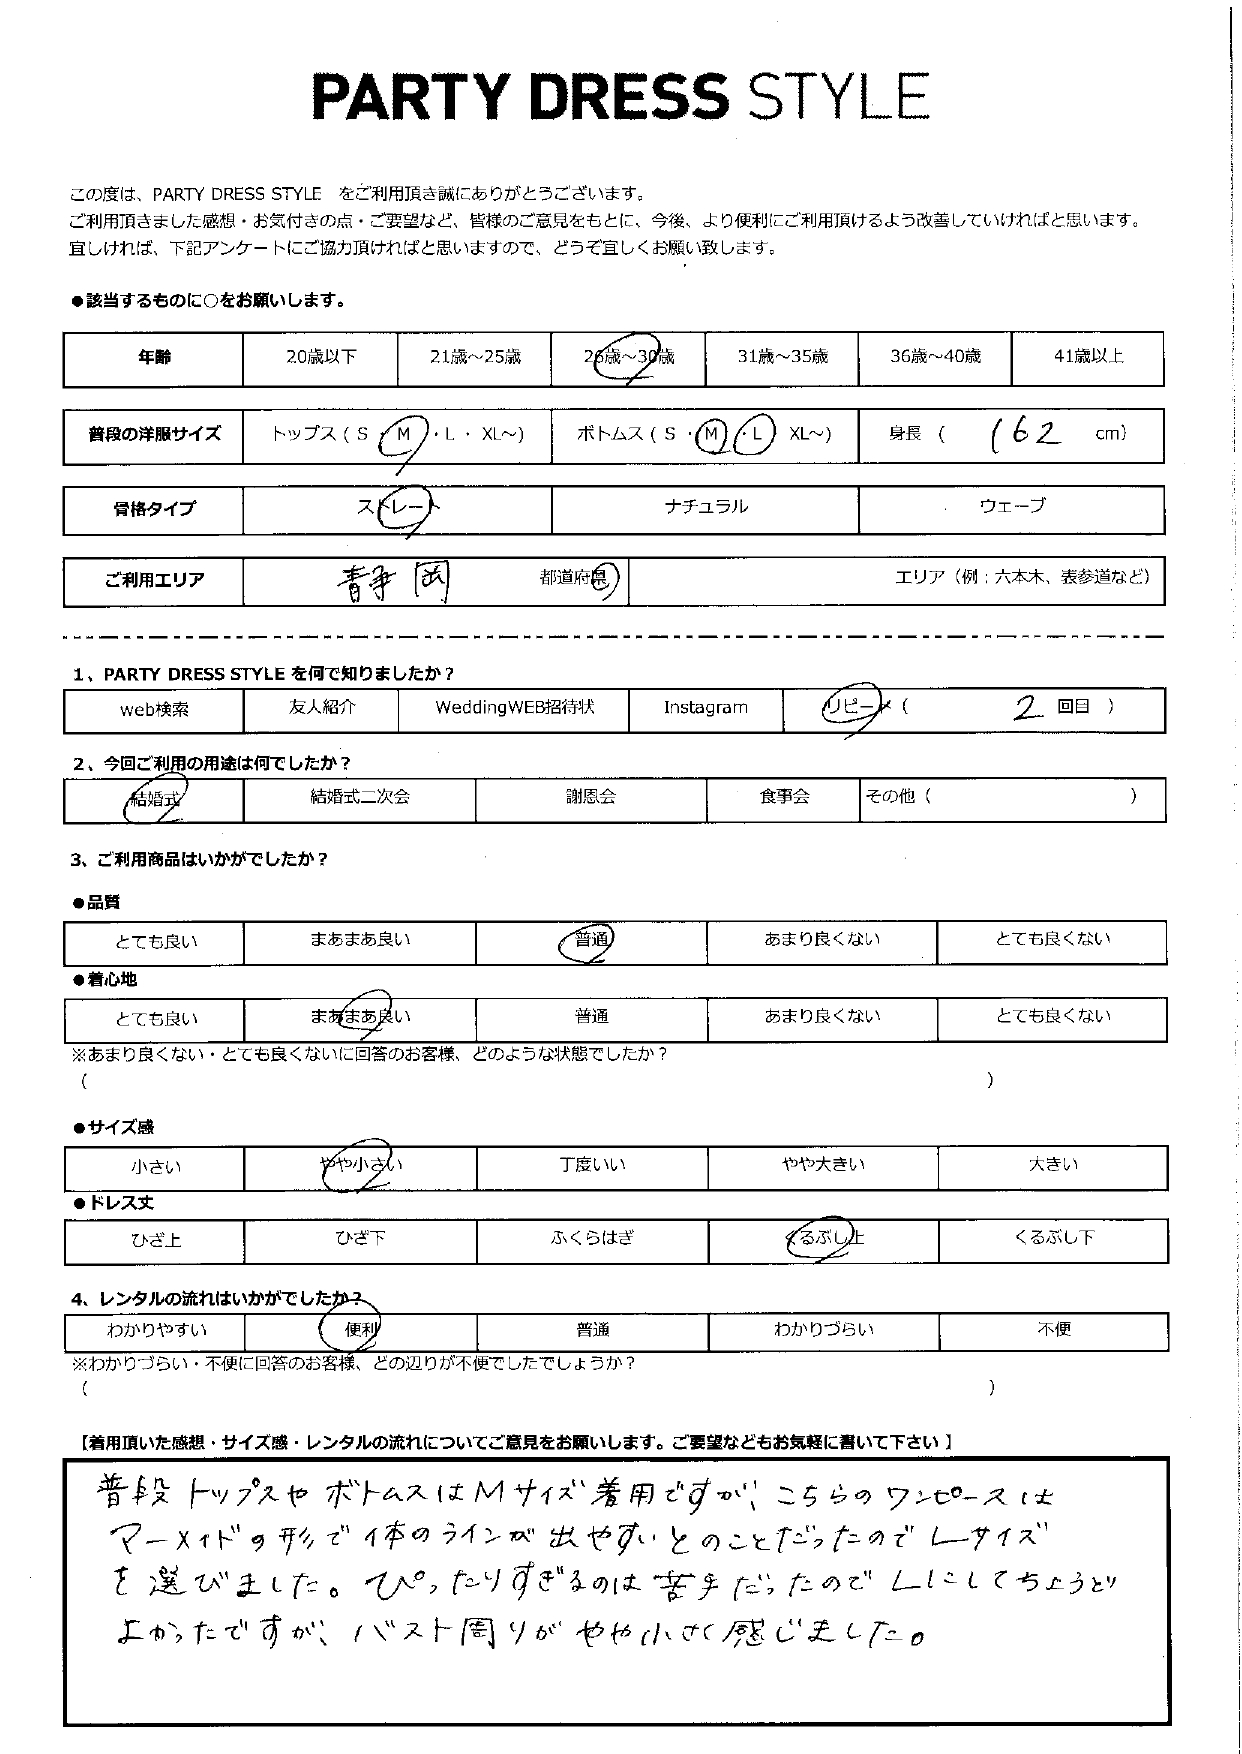 PARTY DRESS STYLE
この度は、PARTY DRESS STYLE をご利用頂き誠にありがとうございます。
ご利用頂きました感想・お気付きの点・ご要望など、皆様のご意見をもとに、今後、より便利にご利用頂けるよう改善していければと思います。
宜しければ、下記アンケートにご協力頂ければと思いますので、どうぞ宜しくお願い致します。
●該当するものに○をお願いします。
年齢 20歳以下 21歳～25歳 26歳～30歳 31歳～35歳 36歳～40歳 41歳以上
普段の洋服サイズ トップス ( S ・ M ・ L ・ XL～) ボトムス ( S ・ M ・ L XL～) 身長 ( 162 cm)
骨格タイプ ストレート ナチュラル ウェーブ
ご利用エリア 静岡 都道府県 エリア（例：六本木、表参道など）
1、PARTY DRESS STYLE を何で知りましたか？
web検索 友人紹介 WeddingWEB招待状 Instagram リピート ( 2 回目 )
2、今回ご利用の用途は何でしたか？
結婚式 結婚式二次会 謝恩会 食事会 その他 ( )
3、ご利用商品はいかがでしたか？
●品質
とても良い まあまあ良い 普通 あまり良くない とても良くない
●着心地
とても良い まあまあ良い 普通 あまり良くない とても良くない
※あまり良くない・とても良くないに回答のお客様、どのような状態でしたか？
( )
●サイズ感
小さい やや小さい 丁度いい やや大きい 大きい
●ドレス丈
ひざ上 ひざ下 ふくらはぎ くるぶし上 くるぶし下
4、レンタルの流れはいかがでしたか？
わかりやすい 便利 普通 わかりづらい 不便
※わかりづらい・不便に回答のお客様、どの辺りが不便でしたでしょうか？
( )
【着用頂いた感想・サイズ感・レンタルの流れについてご意見をお願いします。ご要望などもお気軽に書いて下さい】
普段トップスやボトムスはMサイズ着用ですが、こちらのワンピースは
マーメイドの形で体のラインが出やすいとのことだったのでLサイズ
を選びました。ぴったりすぎるのは苦手だったのでLにしてちょうど
よかったですが、バスト周りがやや小さく感じました。